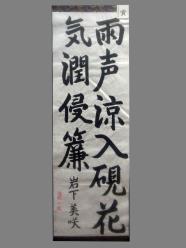 雨声涼入硯花
気潤侵簾
岩下美咲